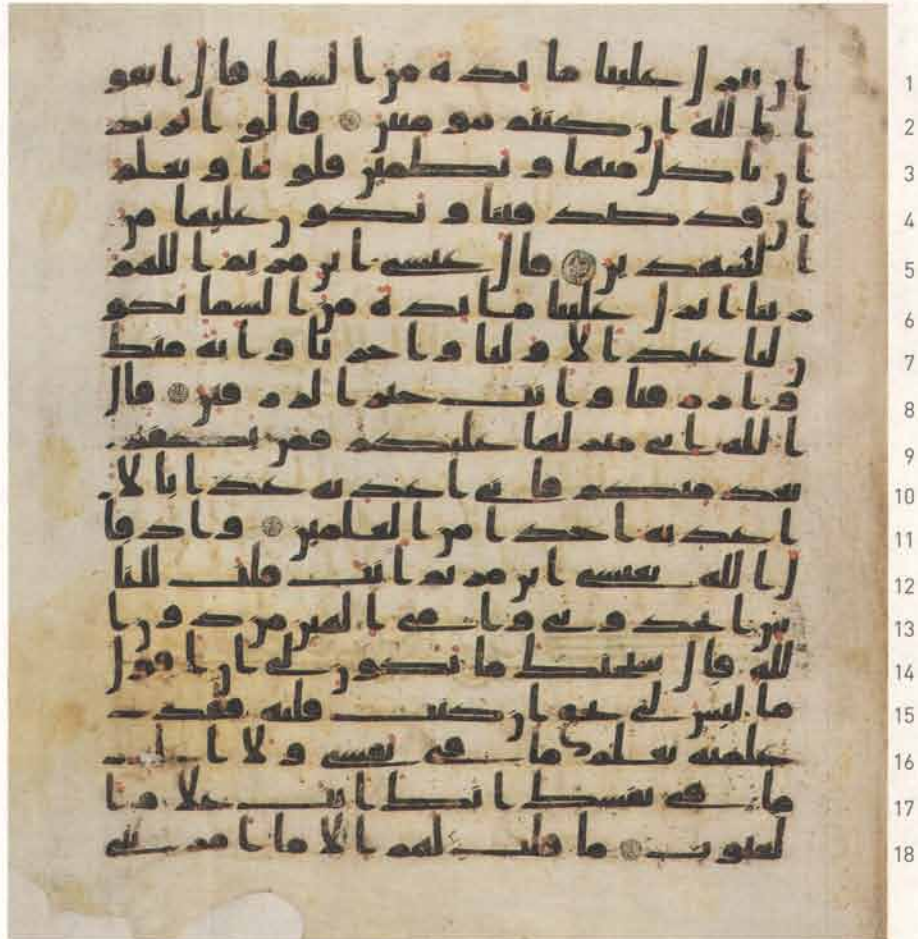 ان ينزل علينا مايدة من السما قال اتقو 1
ا الله ان كنتم مومنين قالوا نريد 2
ان ناكل منها و تطمين قلوبنا و نعلم 3
ان قد صدقتنا و نكون عليها من 4
الشهدين قال عيسى ابن مريم اللهم 5
ربنا انزل علينا مايدة من السما تكو 6
ن لنا عيدا لاولنا واخرنا واية منك 7
وارزقنا وانت خير الرزقين قال 8
الله اني منزلها عليكم فمن يكفر 9
بعد منكم فاني اعذبه عذابا لا 10
اعذبه احدا من العلمين واذ قا 11
ل الله يعيسى ابن مريم انت قلت للنا 12
س اتخذوني وامي الهين من دون ا 13
لله قال سبحنك ما يكون لي ان اقول 14
ما ليس لي بحق ان كنت قلته فقد 15
علمته تعلم ما في نفسي ولا اعلم 16
ما في نفسك انك انت علام ا 17
لغيوب ما قلت لهم الا ما امرتني 18